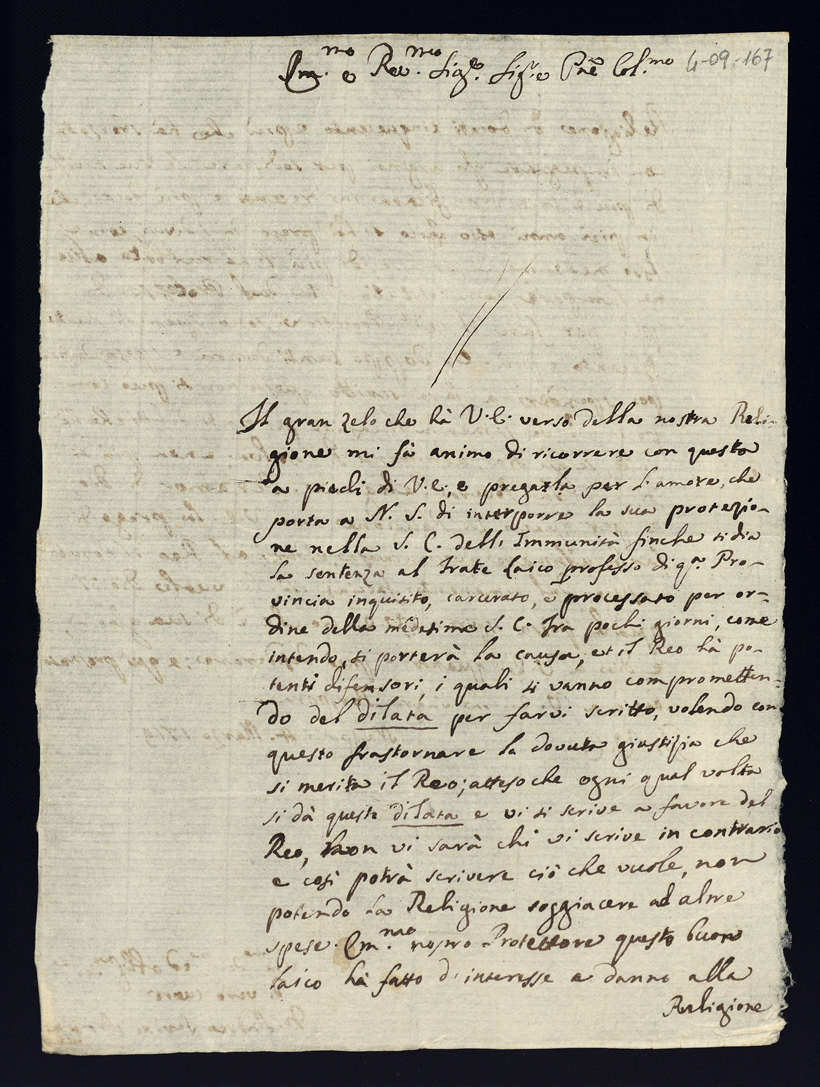 Em.mo e Rev.mo Sig.e Sig.e P̃ne Col.mo 4-09-167
Il gran zelo che hà V. E. verso della nostra Reli-
gione mi fà animo di ricorrere con questa
a piedi di V. E., e pregarla per l'amore, che
porta a N. S. di interporre la sua protezio-
ne nella S. C. dell'Immunità finche si dia
la sentenza al Frate Laico professo di q.a Pro-
vincia inquisito, carcerato, e processato per or-
dine della medesima S. C. Fra pochi giorni, come
intendo, si porterà la causa, et il Reo hà po-
tenti difensori, i quali si vanno compromètten-
do del dilata per farvi scritto, volendo con
questo frastornare la dovuta giustizia che
si merita il Reo; atteso che ogni qual volta
si dà queste dilata e vi si scrive a favore del
Reo, non vi sarà chi vi scrive in contrario
e così potrà scrivere ciò che vuole, non
potendo la Religione soggiacere ad altre
spese. Em.mo nostro Protettore questo buon
laico hà fatto d'interesse e danno alla
Religione